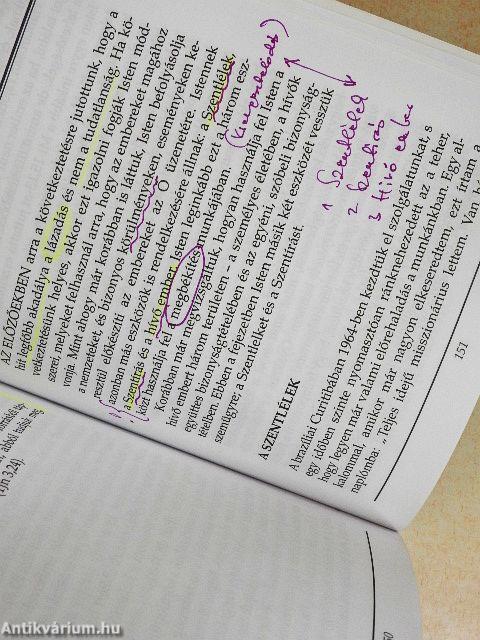 AZ ELŐZŐEKBEN arra a következtetésre jutottunk, hogy a
hit legfőbb akadálya a lázadás és nem a tudatlanság. Ha kö-
vetkeztetésünk helyes, akkor ezt igazolni fogják Isten mód-
szerei, melyeket felhasznál arra, hogy az embereket magához
vonja. Mint ahogy már korábban is láttuk, Isten befolyásolja
a nemzeteket, és bizonyos körülményeken, eseményeken ke-
resztül előkészíti az embereket az Ő üzenetére. Istennek
azonban más eszközök is rendelkezésére állnak: a Szentlélek,
a Szentírás és a hívő ember. Isten leginkább ezt a három esz-
közt használja fel a megbékítés munkájában.
Korábban már megvizsgáltuk, hogyan használja fel Isten a
hívő embert három területen – a személyes életében, a hívők
együttes bizonyságtételében és az egyéni, szóbeli bizonyság-
tételben. Ebben a fejezetben Isten másik két eszközét vesszük
szemügyre; a Szentlelket és a Szentírást.
1 Szentlélek
2 Szentírás
3 Hívő ember
A SZENTLÉLEK
A brazíliai Curitibában 1964-ben kezdtük el szolgálatunkat, s
egy időben szinte nyomasztóan ránknehezedett az a teher,
hogy legyen már valami előrehaladás a munkánkban. Egy al-
kalommal, amikor már nagyon elkeseredtem, ezt írtam a
naplómba: „Teljes idejű misszionárius lettem. Van
151
(1Jn 3,24).
Antikvárium.hu